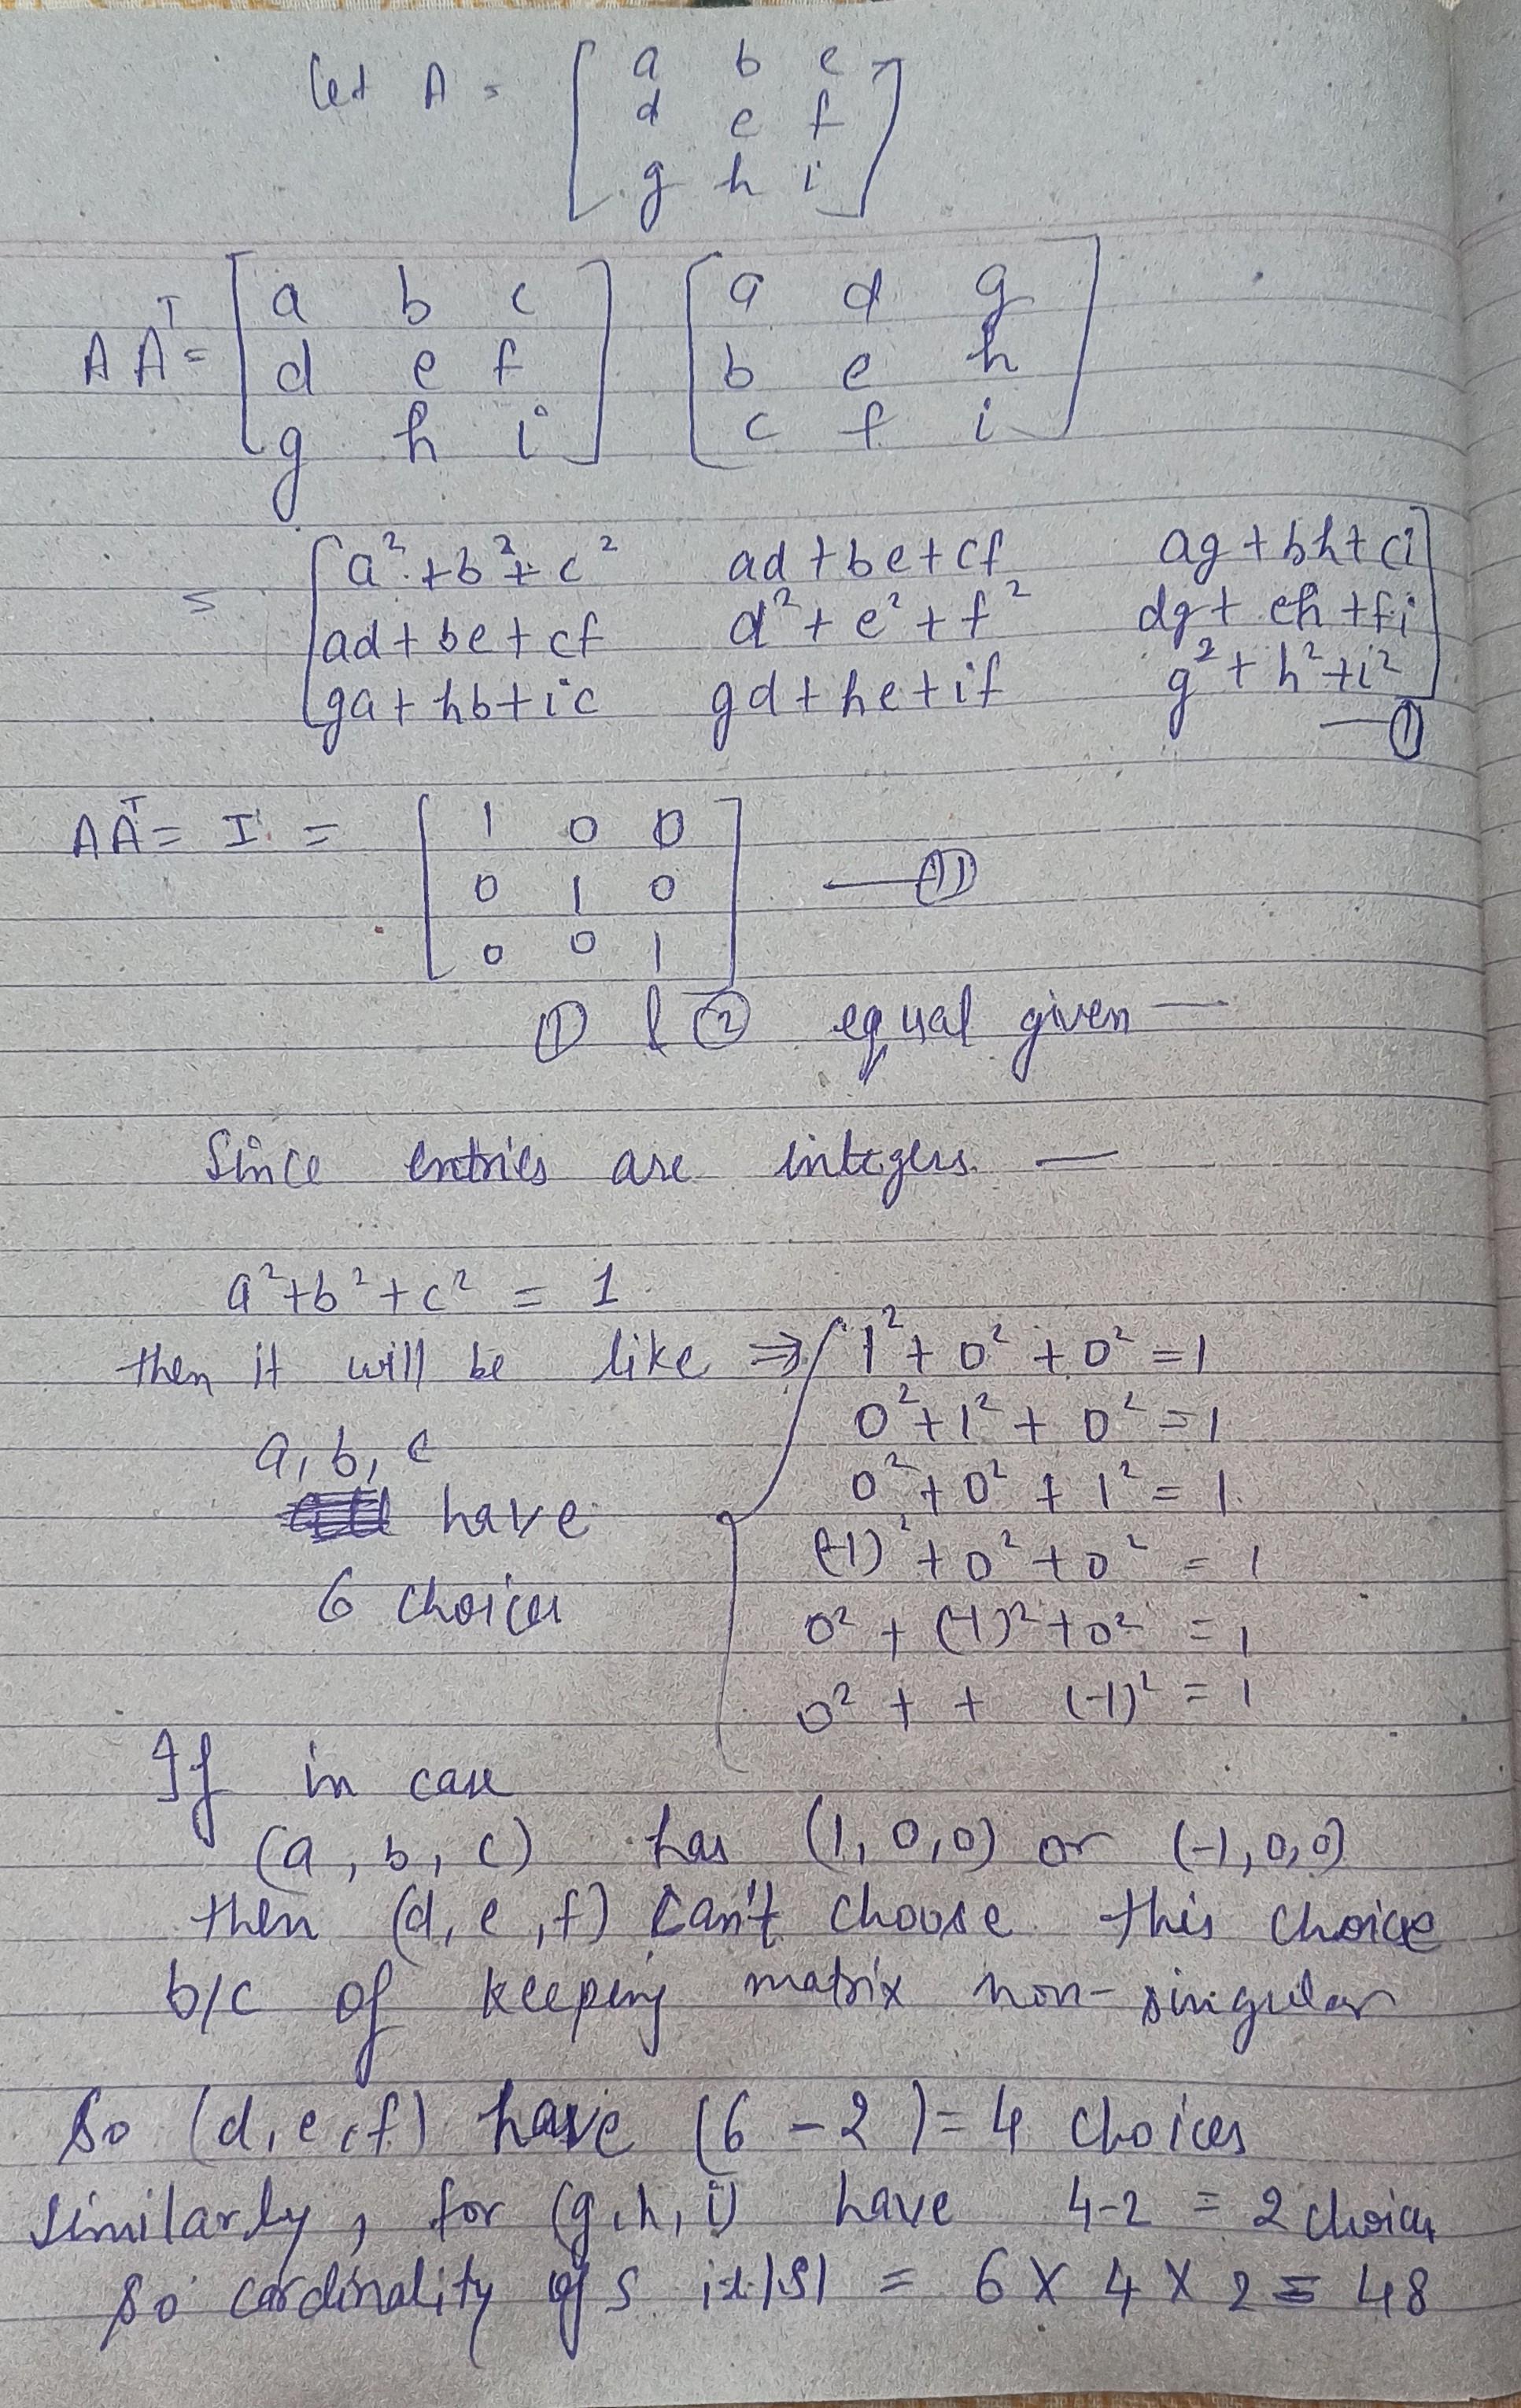 Let A = [ a b c
d e f
g h i ]
A Aᵀ = [ a b c ] [ a d g ]
[ d e f ] [ b e h ]
[ g h i ] [ c f i ]
= [ a² + b² + c² ad + be + cf ag + bh + ci ]
[ ad + be + cf d² + e² + f² dg + eh + fi ]
[ ga + hb + ic gd + he + if g² + h² + i² ]
— ①
A Aᵀ = I = [ 1 0 0
0 1 0 — ⑪
0 0 1 ]
① & ② equal given —
Since entries are integers —
a² + b² + c² = 1
then it will be like ⇒ 1² + 0² + 0² = 1
0² + 1² + 0² = 1
a, b, c
0² + 0² + 1² = 1
have (-1)² + 0² + 0² = 1
6 choices 0² + (-1)² + 0² = 1
0² + + (-1)² = 1
If in case
(a, b, c) has (1, 0, 0) or (-1, 0, 0)
then (d, e, f) can't choose this choice
b/c of keeping matrix non-singular
So (d, e, f) have (6 - 2) = 4 choices
similarly, for (g, h, i) have 4-2 = 2 choices
so cardinality of S |S| = 6 X 4 X 2 = 48